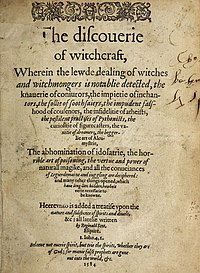 The discouerie
of witchcraft,
Wherein the lewde dealing of witches
and witchmongers is notablie detected, the
knauerie of coniurors, the impietie of inchan-
tors, the follie of soothsaiers, the impudent fals-
hood of cousenors, the infidelitie of atheists,
the pestilent practises of Pythonists, the
curiositie of figurecasters, the va-
nitie of dreamers, the begger-
lie art of Alcu-
mystrie,
The abhomination of idolatrie, the hor-
rible art of poisoning, the vertue and power of
naturall magike, and all the conueiances
of Legierdemaine and iuggling are deciphered:
and many other things opened, which
have long lien hidden, howbeit
verie necessarie to
be knowne.
Heerevnto is added a treatise vpon the
nature and substance of spirits and diuels,
&c: all latelie written
by Reginald Scot
Esquire.
1. Iohn. 4, 1.
Beleeue not euerie spirit, but trie the spirits, whether they are
of God; for manie false prophets are gone
out into the world, &c.
1584